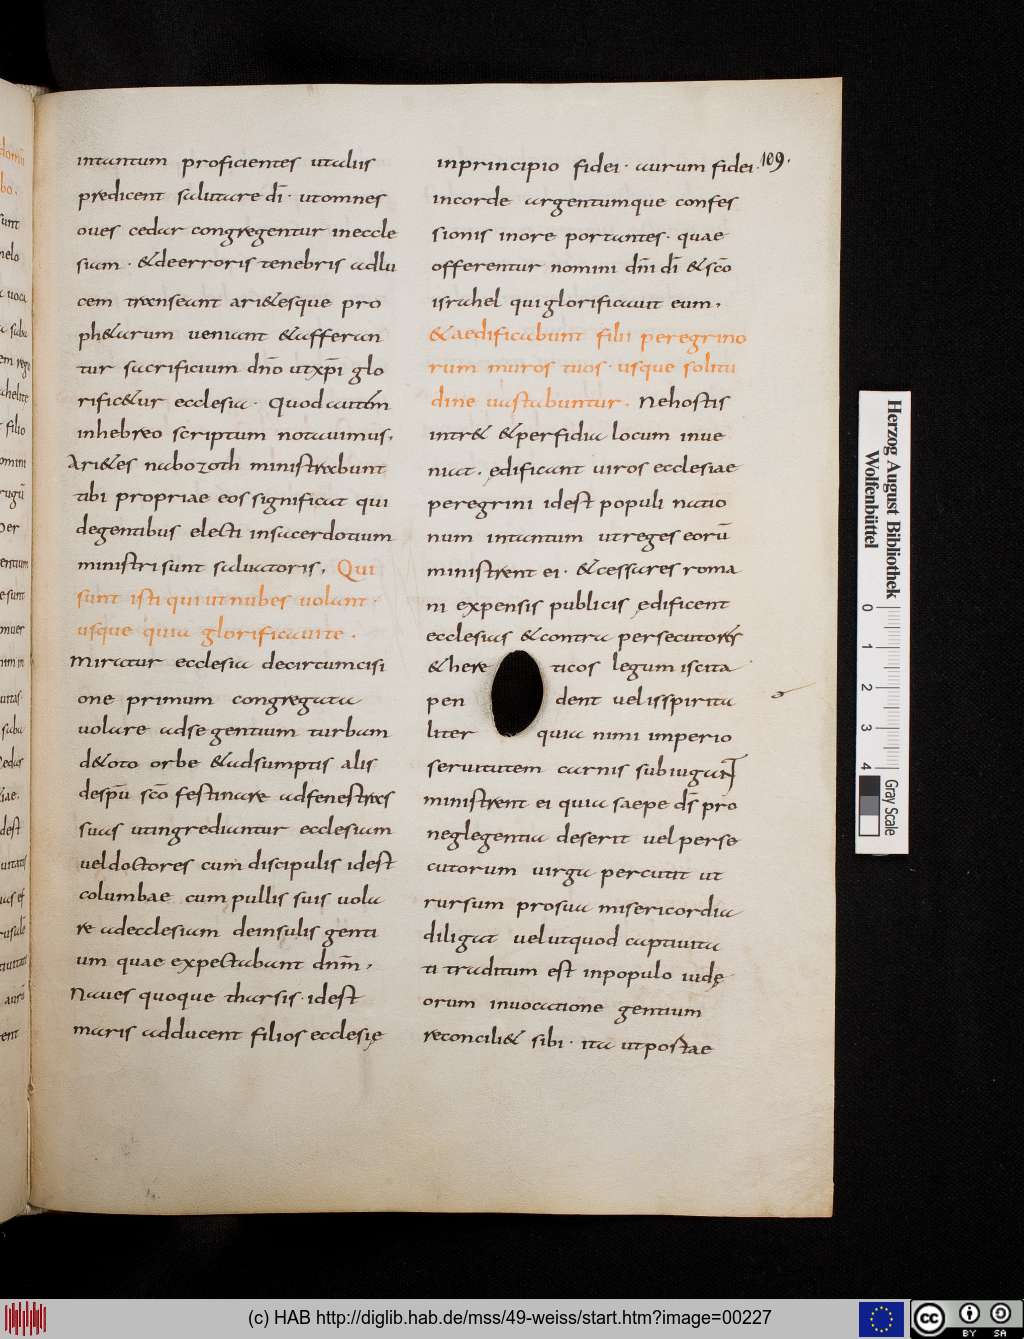 intantum proficientes utaliis
predicent salutare dī · utomnes
oues cedar congregentur ineccle
siam · &deerroris tenebris adlu
cem transeant ari&esque pro
ph&arum ueniant &afferan
tur sacrificium dn̄o utxp̄i glo
rific&ur ecclesia · Quod autem
inhebreo scriptum notauimus,
Ari&es nabozoth ministrabunt
tibi propriae eos significat qui
degentibus electi insacerdotium
ministri sunt saluatoris, Qui
sunt isti qui ut nubes uolant ·
usque quia glorificauit te .
Miratur ecclesia decircumcisi
one primum congregata
uolare adse gentium turbam
d&oto orbe &adsumptis alis
desp̄u sc̄o festinare adfenestras
suas utingrediantur ecclesiam
ueldoctores cum discipulis idest
columbae cum pullis suis uola
re adecclesiam deinsulis genti
um quae expectabant dnm̄,
Naues quoque tharsis · idest
maris adducent filios ecclesię
109.
inprincipio fidei · aurum fidei
incorde argentumque confes
sionis inore portantes · quae
offerentur nomini dn̄i dī &sc̄o
israhel quiglorificauit eum,
&aedificabunt filii peregrino
rum muros tuos · usque solitu
dine uastabuntur . Nehostis
intr& &perfidia locum inue
niat . ędificant uiros ecclesiae
peregrini idest populi natio
num intantum utreges eorū
ministrent ei · &cessares roma
ni expensis publicis ędificent
ecclesias &contra persecutores
&here ticos legum iscita
pen dent uelisspirita
liter quia nimi imperio
seruitutem carnis subiugant
ministrent ei quia saepe ds̄ pro
neglegentia deserit uel perse
cutorum uirga percutit ut
rursum prosua misericordia
diligat uelutquod captiuita
ti traditum est inpopulo iudę
orum inuocatione gentium
reconcili& sibi · ita utpostae
Herzog August Bibliothek
Wolfenbüttel
0 1 2 3 4
Gray Scale
(c) HAB http://diglib.hab.de/mss/49-weiss/start.htm?image=00227
cc
BY SA